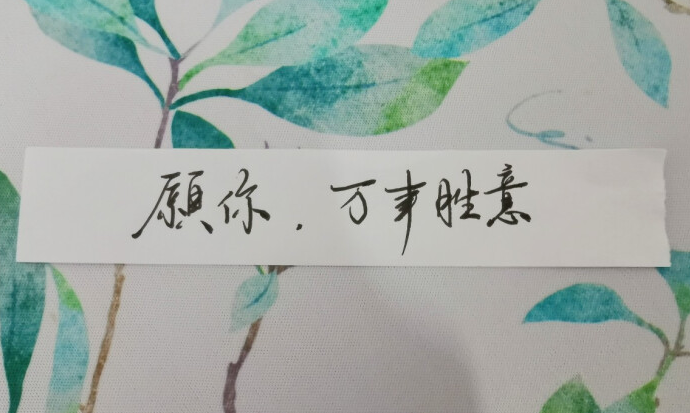 願你，万事胜意